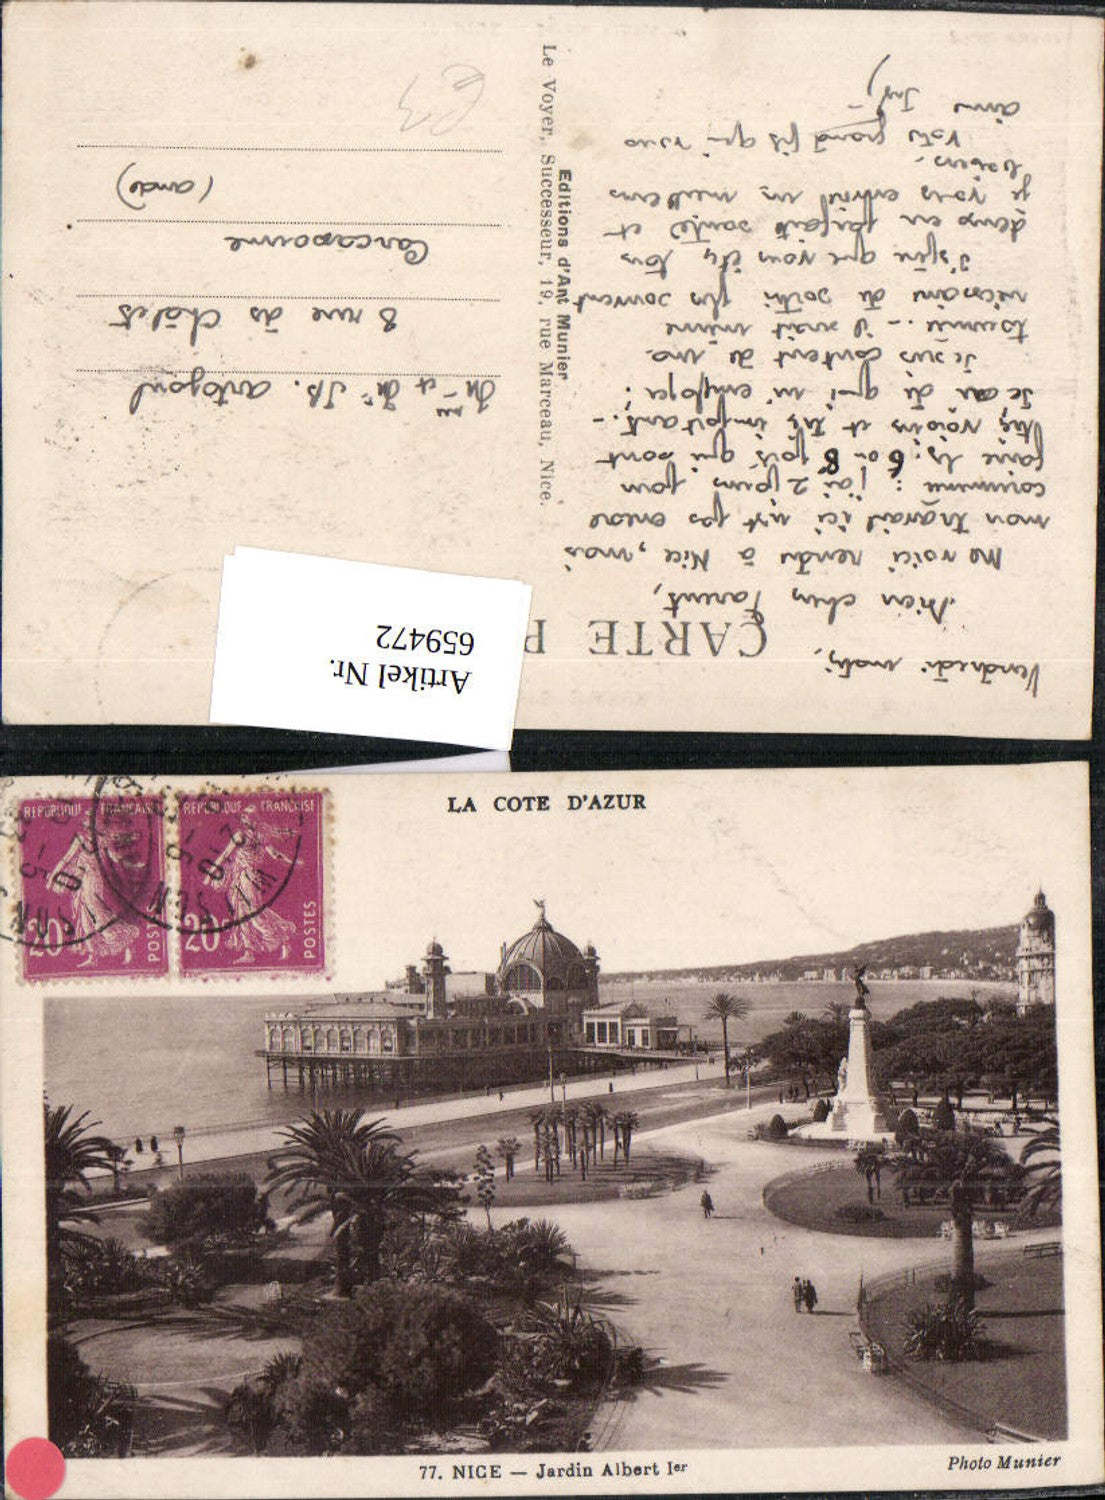 Vendredi matin,
CARTE P
Bien chers Parents,
Me voici rendu à Nice, mais
mon travail ici n'est pas encore
commencé : j'ai 2 jours pour
faire les 6 ou 8 qui sont
très voisins et très importants.
Je suis content de ma
tournée. – il serait même
nécessaire de plus souvent
J'espère que vous êtes tous
deux en parfaite santé et
je vous envoie mes meilleurs
baisers.
Votre grand fils qui vous
aime
Editions d'Art Munier
Le Voyer, Successeur, 19, rue Marceau, Nice.
Mme et Mr JB.
8 rue des Châlets
Carcassonne
(Aude)
Artikel Nr.
659472
LA COTE D'AZUR
REPUBLIQUE FRANÇAISE
20
POSTES
REPUBLIQUE FRANÇAISE
20
POSTES
77. NICE — Jardin Albert Ier
Photo Munier